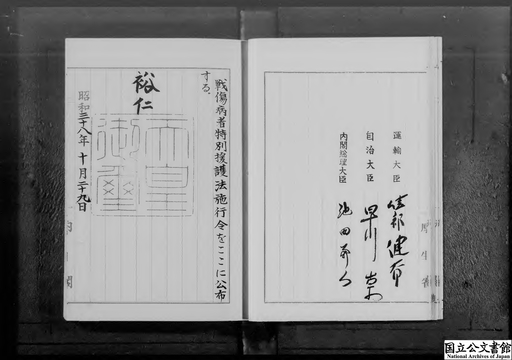 運輸大臣
綾部健太郎
自治大臣
早川崇
内閣総理大臣
池田勇人
戦傷病者特別援護法施行令をここに公布
する。
裕仁
天皇
御璽
昭和三十八年十月二十九日
国立公文書館
National Archives of Japan